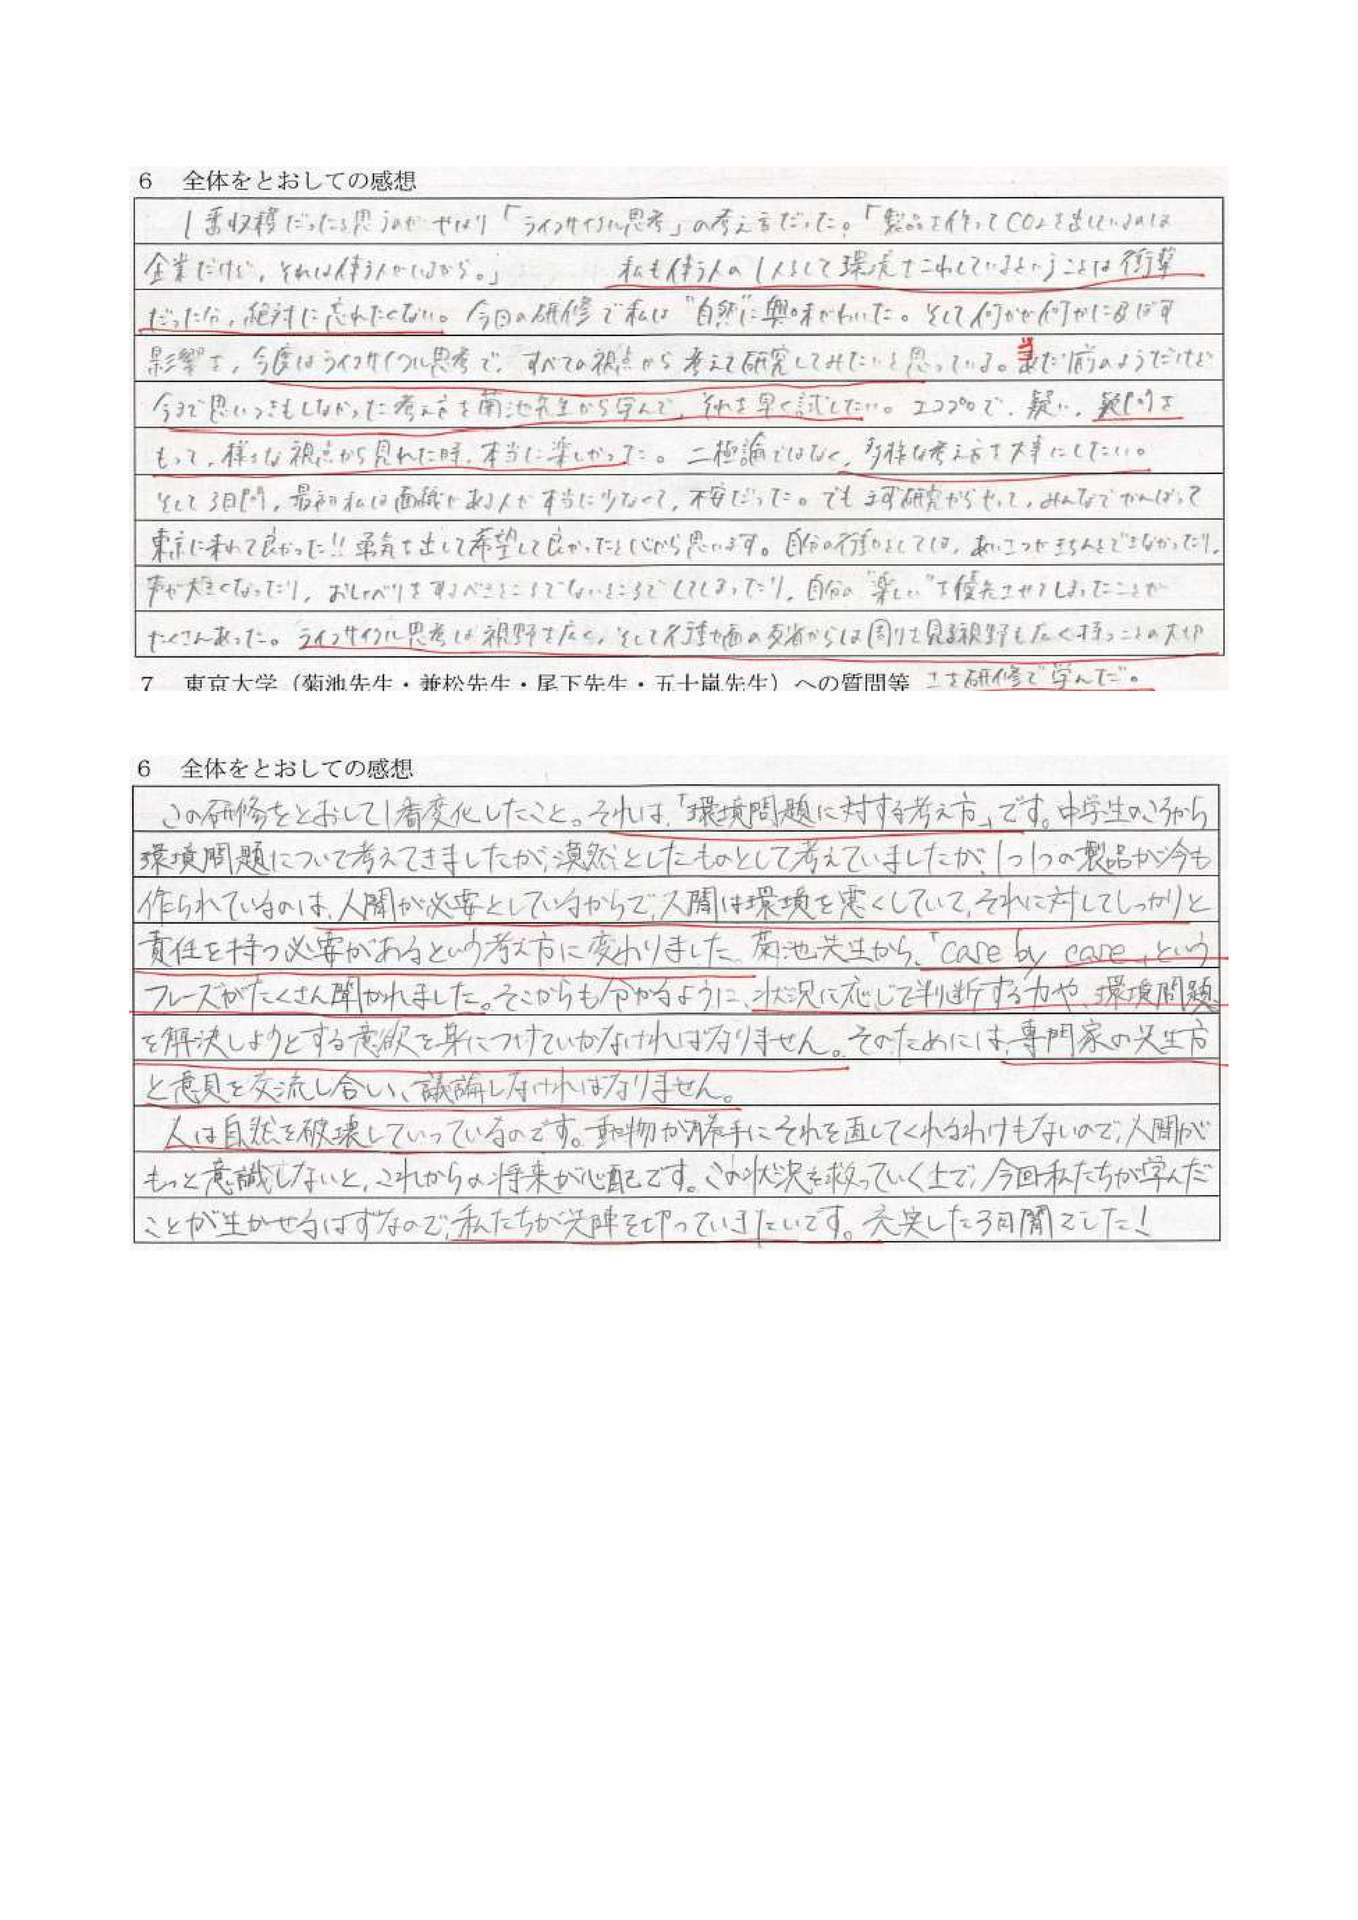 6 全体をとおしての感想
1番収穫だったと思うのが やはり「ライフサイクル思考」の考え方だった。「製品を作ってCO2を出しているのは
企業だけど、それは使う人がいるから。」 私も使う人の1人として環境をこわしているということは衝撃
だった分、絶対に忘れたくない。今回の研修で私は"自然"に興味がわいた。そして何かが何かに及ぼす
影響を、今度はライフサイクル思考で、すべての視点から考えて研究してみたいと思っている。まだ前のようだけど
今まで思いつきもしなかった考え方を菊池先生から学んで、それを早く試したい。エコプロで、疑い、疑問を
もって、様々な視点から見れた時、本当に楽しかった。二極論ではなく、多様な考え方を大事にしたい。
そして3日間、最初私は面識がある人が本当に少なくて、不安だった。でもまず研究からやって、みんなでがんばって
東京に来れて良かった!!勇気を出して希望して良かったと心から思います。自分の行動としては、あいさつがきちんとできなかったり、
声が大きくなったり、おしゃべりをするべきところでないところでしてしまったり、自分の"楽しい"を優先させてしまったことが
たくさんあった。ライフサイクル思考は視野を広く、そして行動面の反省からは周りを見る視野も広く持つことの大切
さを研修で学んだ。
7 東京大学（菊池先生・兼松先生・尾下先生・五十嵐先生）への質問等
6 全体をとおしての感想
この研修をとおして1番変化したこと。それは、「環境問題に対する考え方」です。中学生のころから
環境問題について考えてきましたが、漠然としたものとして考えていましたが、1つ1つの製品が今も
作られているのは、人間が必要としているからで、人間は環境を悪くしていて、それに対してしっかりと
責任を持つ必要があるという考え方に変わりました。菊池先生から、「case by case」という
フレーズがたくさん聞かれました。そこからも分かるように、状況に応じて判断する力や、環境問題
を解決しようとする意欲を身につけていかなければなりません。そのためには、専門家の先生方
と意見を交流し合い、議論しなければなりません。
人は自然を破壊していっているのです。動物が勝手にそれを直してくれるわけもないので、人間が
もっと意識しないと、これからの将来が心配です。この状況を救っていく上で、今回私たちが学んだ
ことが生かせるはずなので、私たちが先陣を切っていきたいです。充実した3日間でした！